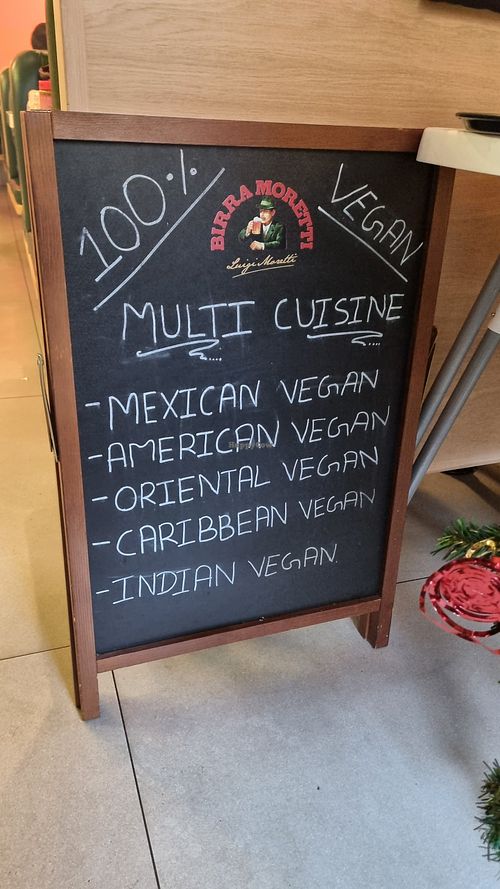 100%
BIRRA MORETTI
Luigi Moretti
VEGAN
MULTI CUISINE
-MEXICAN VEGAN
-AMERICAN VEGAN
HappyCow
-ORIENTAL VEGAN
-CARIBBEAN VEGAN
-INDIAN VEGAN.